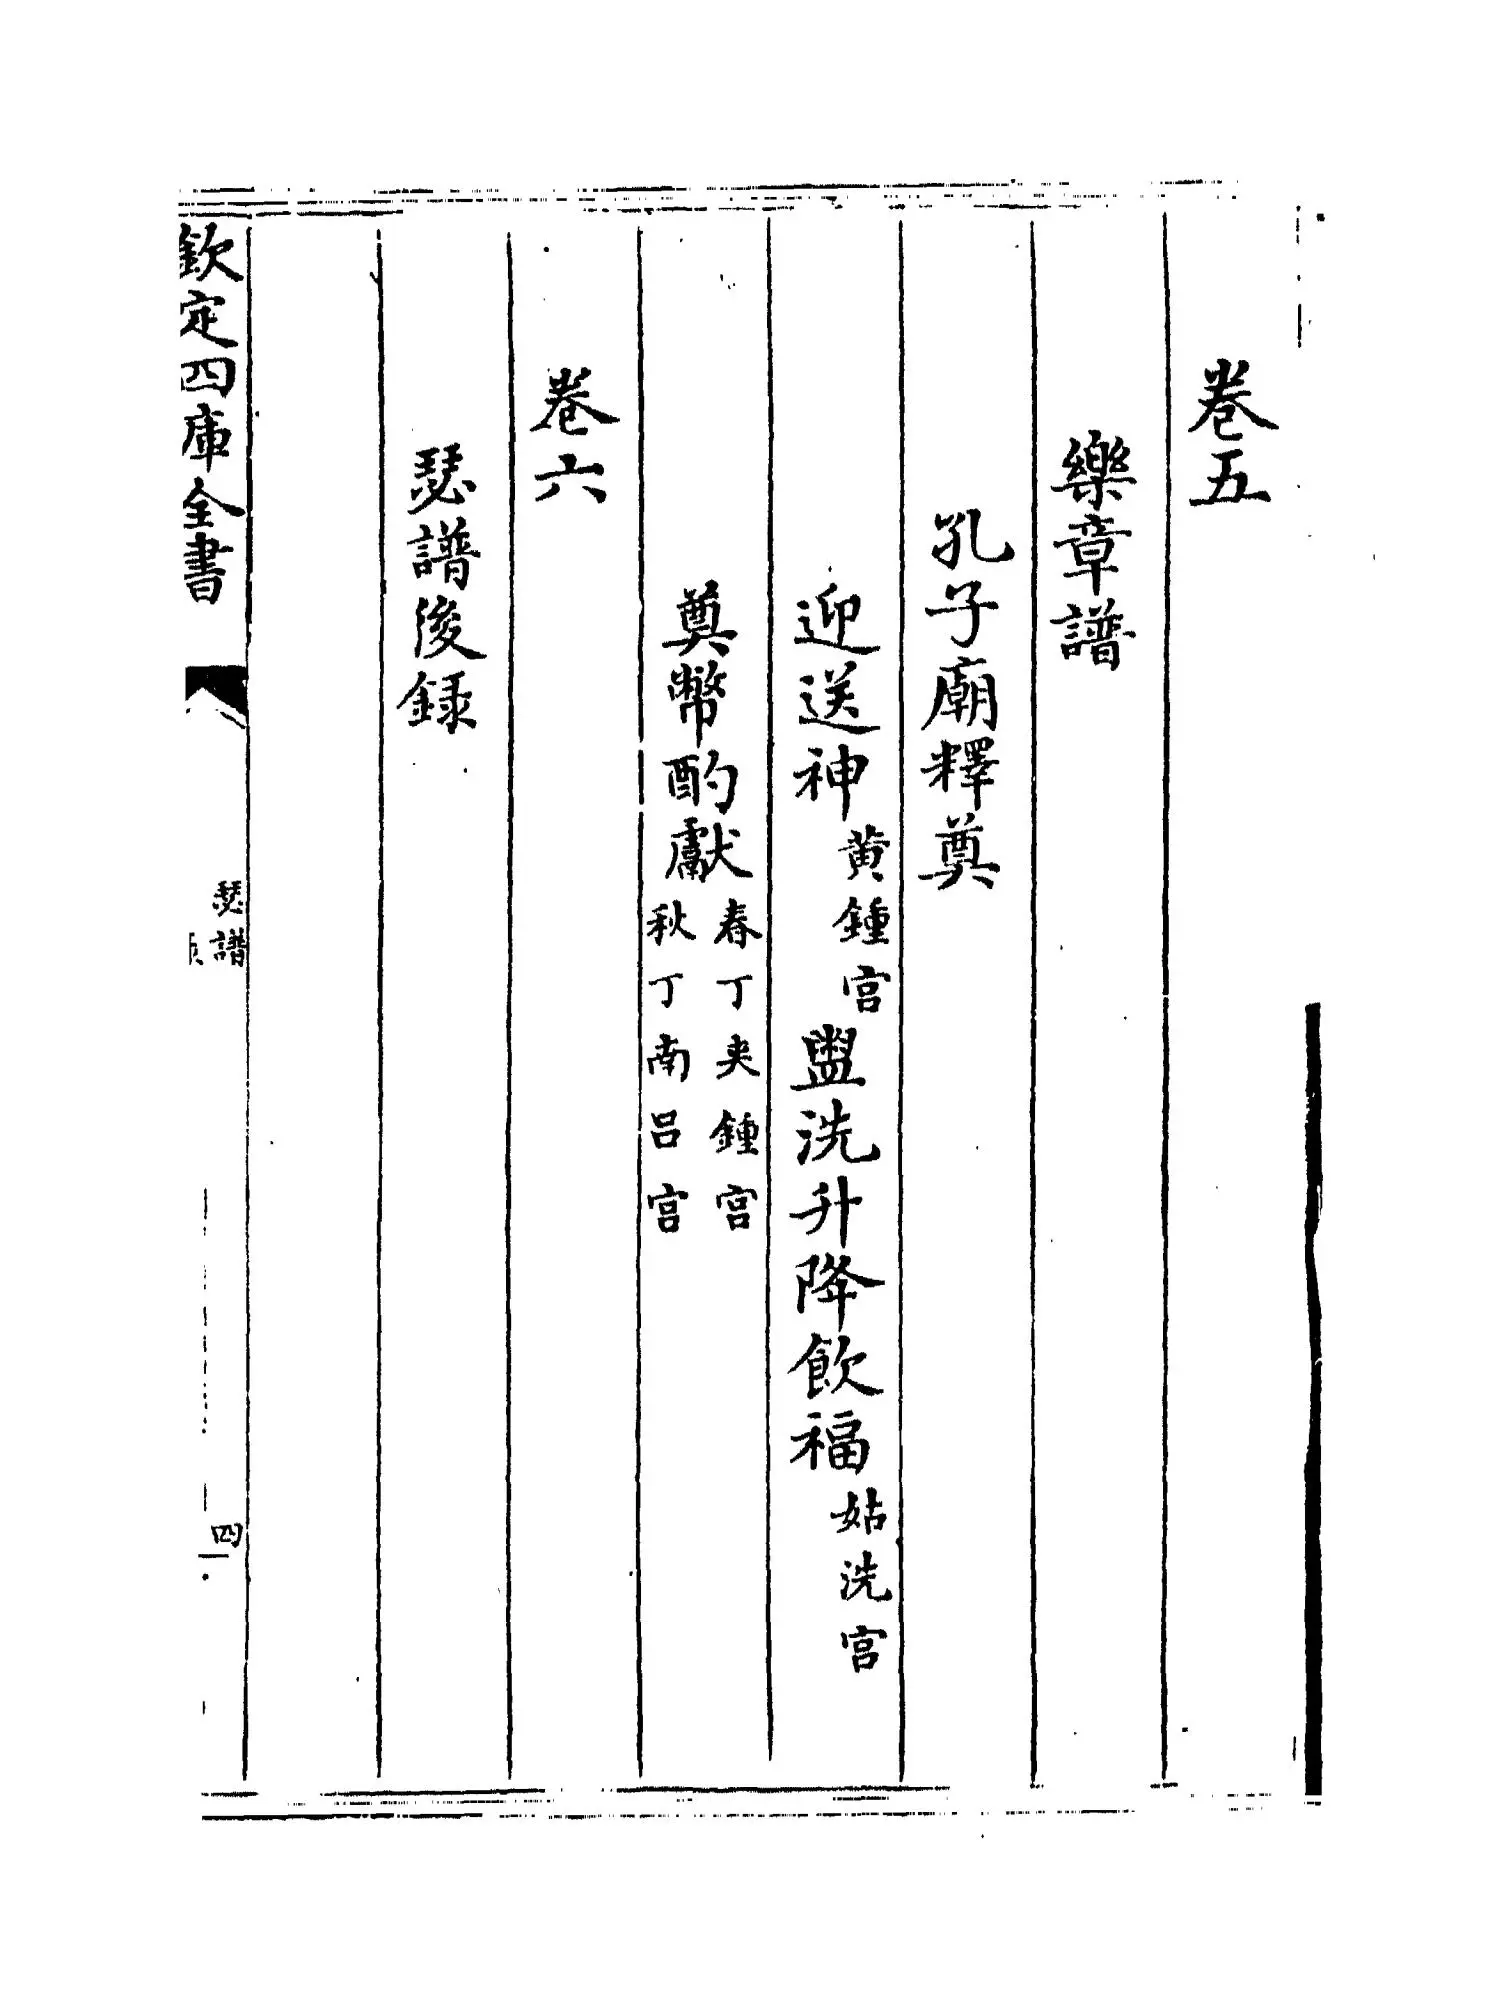 卷五
樂章譜
孔子廟釋奠
迎送神黄鍾宫盥洗升降飲福姑洗宫
奠幣酌獻春丁夾鍾宫秋丁南吕宫
卷六
瑟譜後録
欽定四庫全書
瑟譜
四